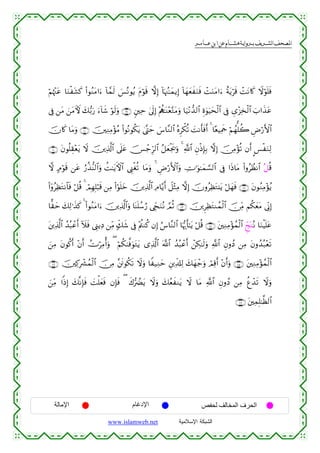 المصحف الشريف برواية هشام عن ابن عامر
فَلَوْلَا كَانَتْ قَرْيَةٌ ءَامَنَتْ فَنَفَعَهَا إِيمَٰنُهَا إِلَّا قَوْمَ يُونُسَ لَمَّا ءَامَنُوا۟ كَشَفْنَا عَنْهُمْ
عَذَابَ ٱلْخِزْىِ فِى ٱلْحَيَوٰةِ ٱلدُّنْيَا وَمَتَّعْنَٰهُمْ إِلَىٰ حِينٍ وَلَوْ شَآءَ رَبُّكَ لَءَامَنَ مَن فِى
ٱلْأَرْضِ كُلُّهُمْ جَمِيعًا أَفَأَنتَ تُكْرِهُ ٱلنَّاسَ حَتَّىٰ يَكُونُوا۟ مُؤْمِنِينَ وَمَا كَانَ
لِنَفْسٍ أَن تُؤْمِنَ إِلَّا بِإِذْنِ ٱللَّهِ وَيَجْعَلُ ٱلرِّجْسَ عَلَى ٱلَّذِينَ لَا يَعْقِلُونَ
قُلُ ٱنظُرُوا۟ مَاذَا فِى ٱلسَّمَٰوَٰتِ وَٱلْأَرْضِ وَمَا تُغْنِى ٱلْءَايَٰتُ وَٱلنُّذُرُ عَن قَوْمٍ لَّا
يُؤْمِنُونَ فَهَلْ يَنتَظِرُونَ إِلَّا مِثْلَ أَيَّامِ ٱلَّذِينَ خَلَوْا۟ مِن قَبْلِهِمْ قُلْ فَٱنتَظِرُوٓا۟
إِنِّى مَعَكُم مِّنَ ٱلْمُنتَظِرِينَ ثُمَّ نُنَجِّى رُسُلَنَا وَٱلَّذِينَ ءَامَنُوا۟ كَذَٰلِكَ حَقًّا
عَلَيْنَا نُنَجِّ ٱلْمُؤْمِنِينَ قُلْ يَٰٓأَيُّهَا ٱلنَّاسُ إِن كُنتُمْ فِى شَكٍّ مِّن دِينِى فَلَآ أَعْبُدُ ٱلَّذِينَ
تَعْبُدُونَ مِن دُونِ ٱللَّهِ وَلَٰكِنْ أَعْبُدُ ٱللَّهَ ٱلَّذِى يَتَوَفَّىٰكُمْ وَأُمِرْتُ أَنْ أَكُونَ مِنَ
ٱلْمُؤْمِنِينَ وَأَنْ أَقِمْ وَجْهَكَ لِلدِّينِ حَنِيفًا وَلَا تَكُونَنَّ مِنَ ٱلْمُشْرِكِينَ
وَلَا تَدْعُ مِن دُونِ ٱللَّهِ مَا لَا يَنفَعُكَ وَلَا يَضُرُّكَ فَإِن فَعَلْتَ فَإِنَّكَ إِذًا مِّنَ
ٱلظَّٰلِمِينَ
الحرف المخالف لحفص الإدغام الإمالة
الشبكة الإسلامية www.islamweb.net